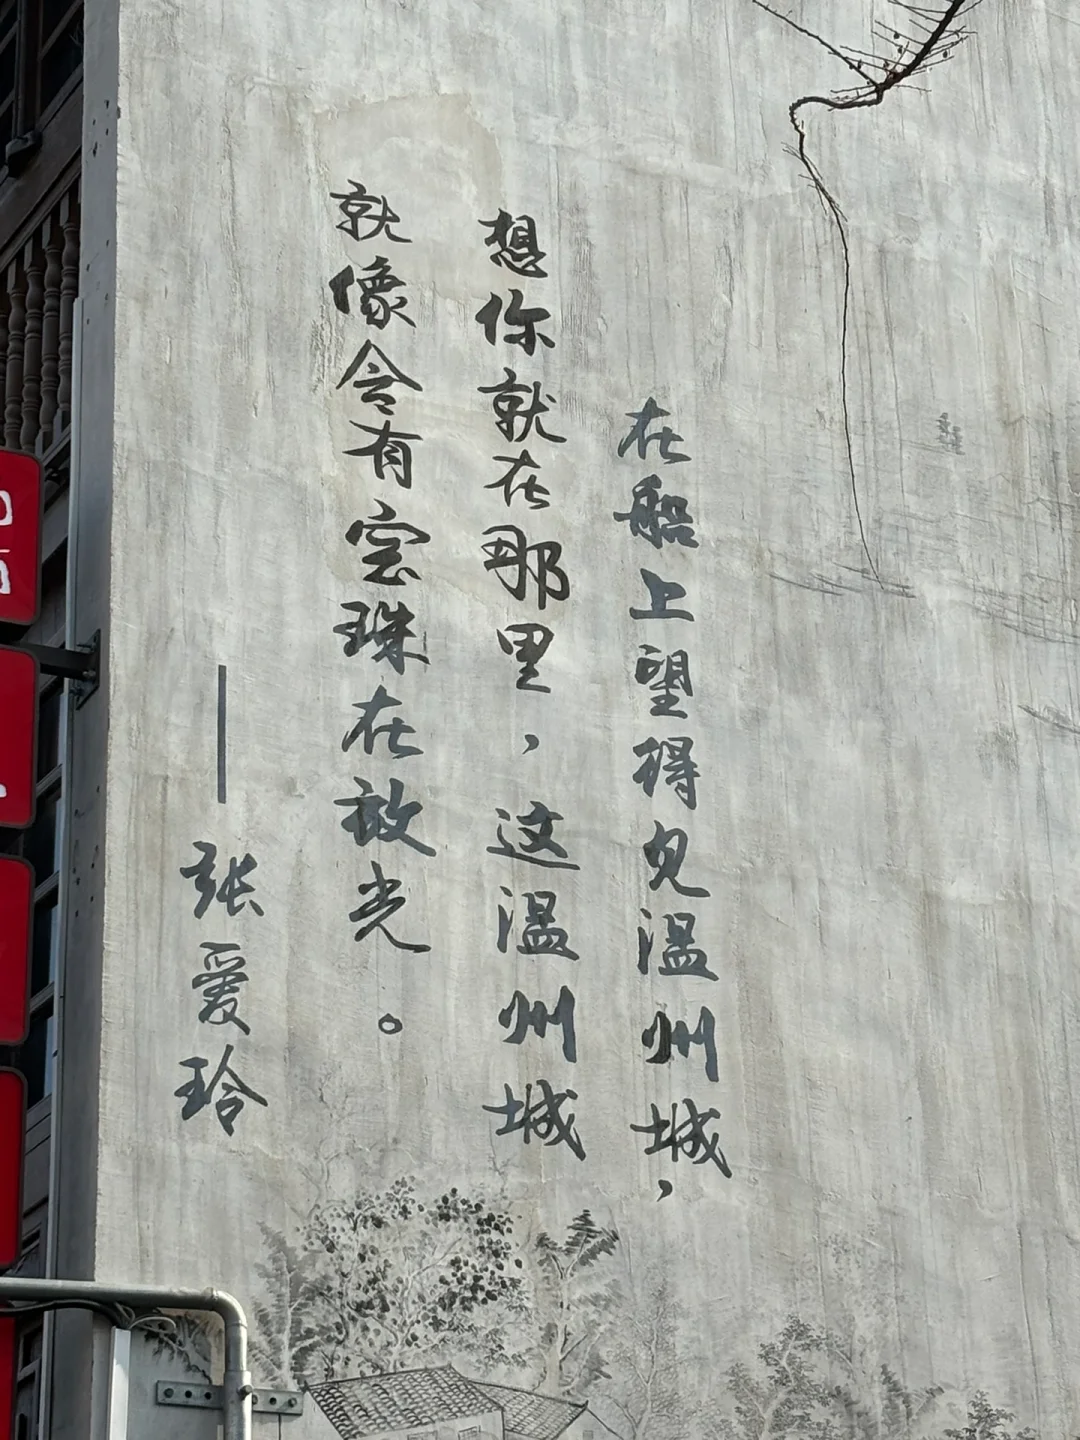 在船上望得见温州城，
想你就在那里，这温州城
就像含有宝珠在放光。
——张爱玲